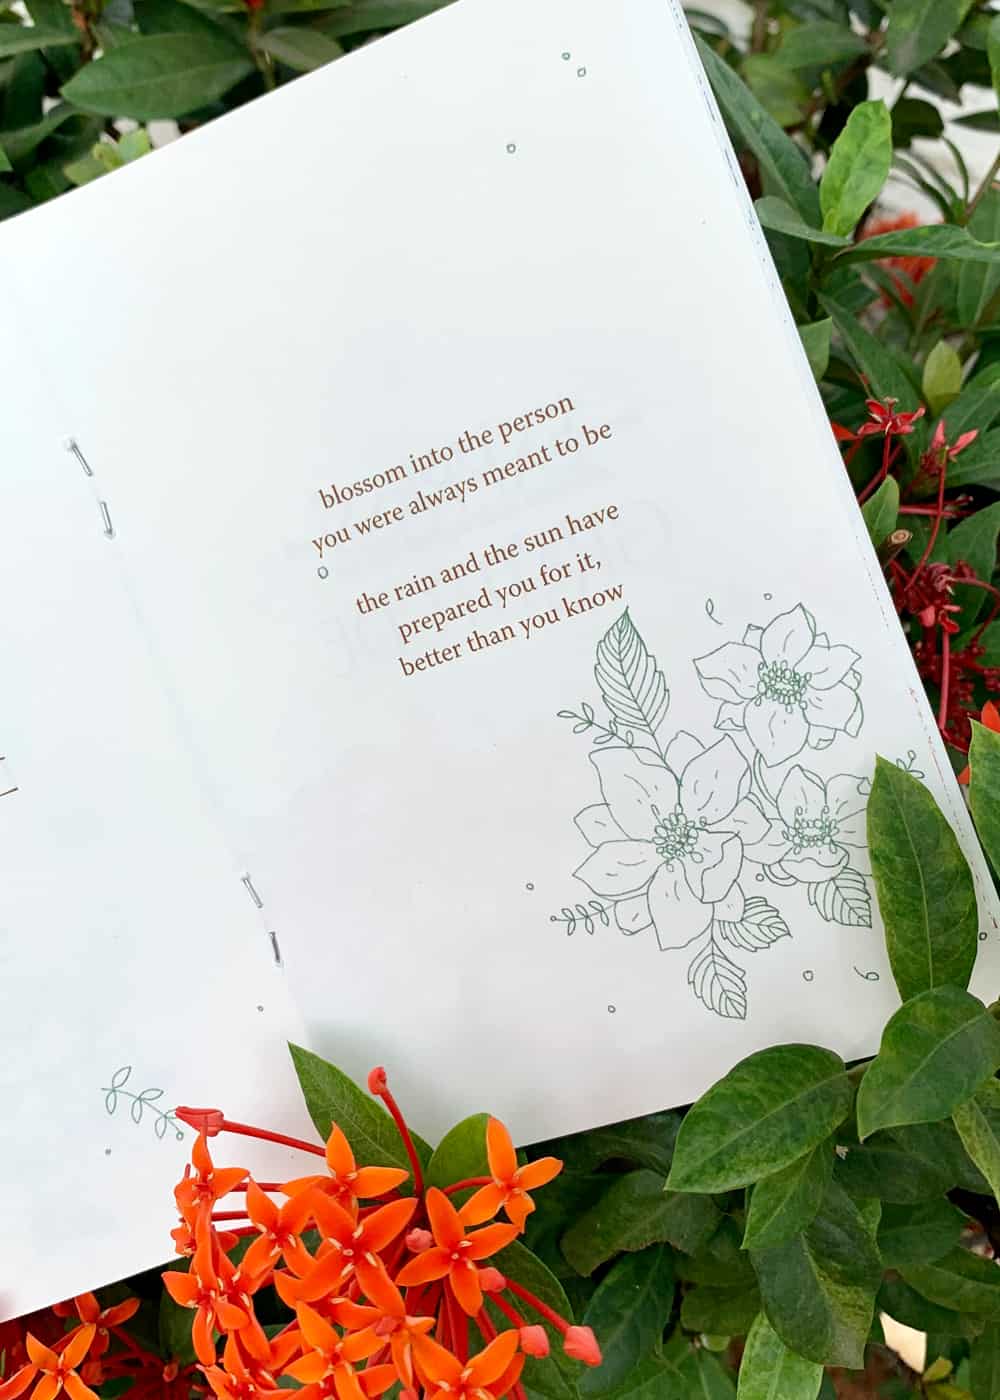 blossom into the person
you were always meant to be
the rain and the sun have
prepared you for it,
better than you know